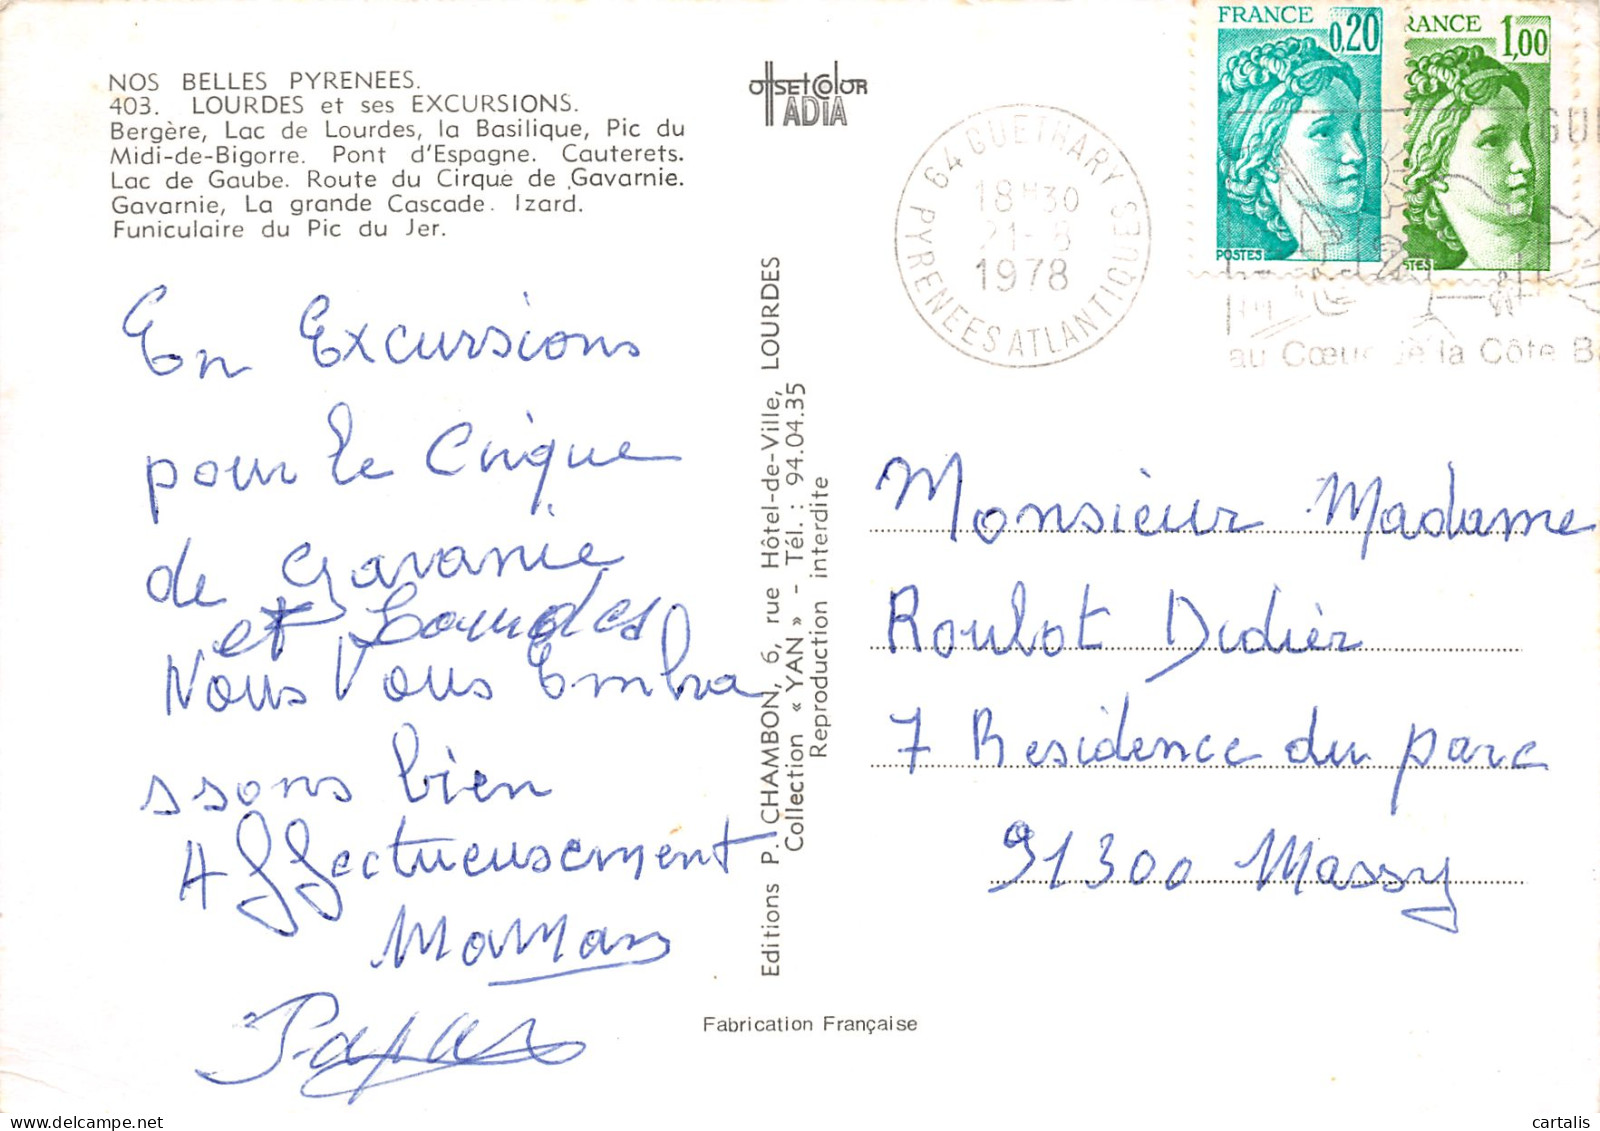 NOS BELLES PYRENEES.
403. LOURDES et ses EXCURSIONS.
Bergère, Lac de Lourdes, la Basilique, Pic du
Midi-de-Bigorre. Pont d'Espagne. Cauterets.
Lac de Gaube. Route du Cirque de Gavarnie.
Gavarnie, La grande Cascade. Izard.
Funiculaire du Pic du Jer.
En Excursions
pour le Cirque
de Gavarnie
et Lourdes
Nous Vous Embra
ssons bien
Affectueusement
Maman
Papa
OffsetColor
IADIA
Editions P. CHAMBON, 6, rue Hôtel-de-Ville, LOURDES
Collection « YAN » - Tél. : 94.04.35
Reproduction interdite
Fabrication Française
FRANCE
0,20
POSTES
RANCE
1,00
STES
64 GUETHARY
18H30
21-8
1978
PYRENEES ATLANTIQUES
GU
au Cœur de la Côte B
Monsieur Madame
Roulot Didier
7 Residence du parc
91300 Massy
cartalis